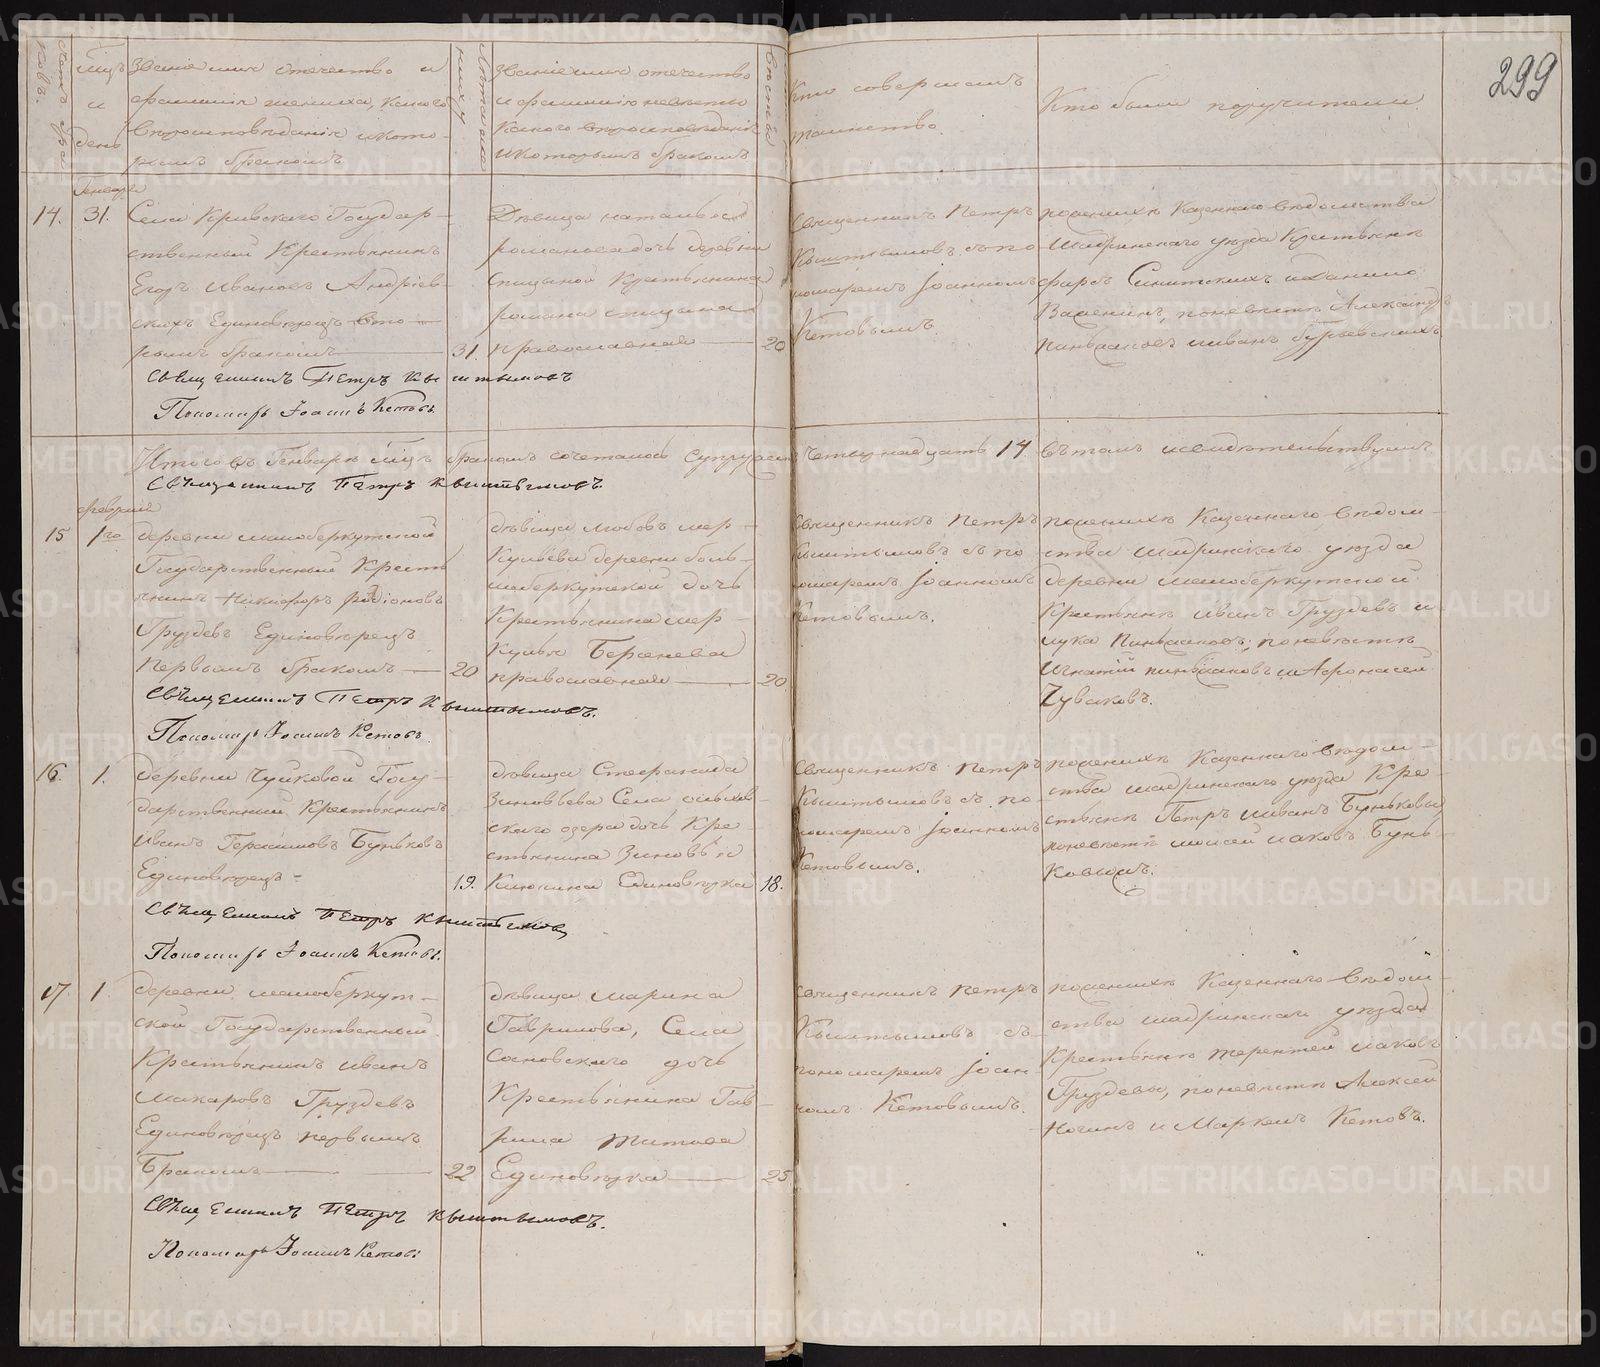 299
Званіе имя отечество и
фамилія жениха, какого
вероисповѣданія и кото-
рымъ бракомъ
Званіе имя отечество
и фамилію невѣсты
какого вероисповѣданія
и которымъ бракомъ
Кто совершалъ
таинство.
Кто были поручители
Генваря
14. 31.
Села Кривскаго Государ-
ственный Крестьянинъ
Егоръ Ивановъ Андріев-
скихъ Единовѣрецъ вто-
рымъ бракомъ
31.
Дѣвица наталья
романова дочь деревни
Спицыной Крестьянина
романа спицына
православная
20
Священникъ Петръ
Кыштымовъ съ по
номаремъ Іоанномъ
Кетовымъ.
по женихѣ Казеннаго вѣдомства
Шадринскаго уѣзда Крестьяне
и данило
по невѣстѣ Александръ
иванъ
Священникъ Петръ Кыштымовъ
Пономарь Іоаннъ Кетовъ
Итого въ Генварѣ мцѣ бракомъ сочеталось супружествъ
четырнадцать 14 въ томъ и свидѣтельствуемъ
Священникъ Петръ Кыштымовъ.
февраля
15 1го
деревни малоберкутской
Государственный Кресть
янинъ Никифоръ родіоновъ
Груздевъ Единовѣрецъ
первымъ бракомъ
20
дѣвица любовь мер-
кульева деревни боль-
шеберкутской дочь
Крестьянина мер-
кулья Береневa
православная
20
Священникъ Петръ
Кыштымовъ съ по
номаремъ Іоанномъ
Кетовымъ.
по женихѣ Казеннаго вѣдом-
ства шадринскаго уѣзда
деревни малоберкутской
Крестьяне иванъ Груздевъ и
лука по невѣстѣ
Игнатій и Афонасей
Чуваковъ.
Священникъ Петръ Кыштымовъ.
Пономарь Іоаннъ Кетовъ.
16. 1.
деревни Чуйковой Госу-
дарственный Крестьянинъ
иванъ Герасимовъ Буньковъ
Единовѣрецъ-
19.
дѣвица Стефанида
Зиновьева Села
скаго озера дочь Кре-
стьянина Зиновья
Единовѣрка
18.
Священникъ Петръ
Кыштымовъ съ по-
номаремъ Іоанномъ
Кетовымъ.
по женихѣ Казеннаго вѣдом-
ства шадринскаго уѣзда Кре-
стьяне Петръ иванъ Буньковы
по невѣстѣ моисей иаковъ Бунь-
ковымъ.
Священникъ Петръ Кыштымовъ
Пономарь Іоаннъ Кетовъ.
17 1
деревни малоберкут-
ской Государственный
Крестьянинъ иванъ
Макаровъ Груздевъ
Единовѣрецъ первымъ
бракомъ
22
дѣвица марина
Гаврилова, Села
Сановскаго дочь
Крестьянина Гав-
рила Титова
Единовѣрка
25
Священникъ Петръ
Кыштымовъ съ
пономаремъ Іоан-
номъ Кетовымъ.
по женихѣ Казеннаго вѣдом-
ства шадринскаго уѣзда
Крестьяне терентей иаковъ
Груздевы, по невѣстѣ Алексей
и Маркелъ Кетовъ.
Священникъ Петръ Кыштымовъ.
Пономарь Іоаннъ Кетовъ
METRIKI.GASO-URAL.RU